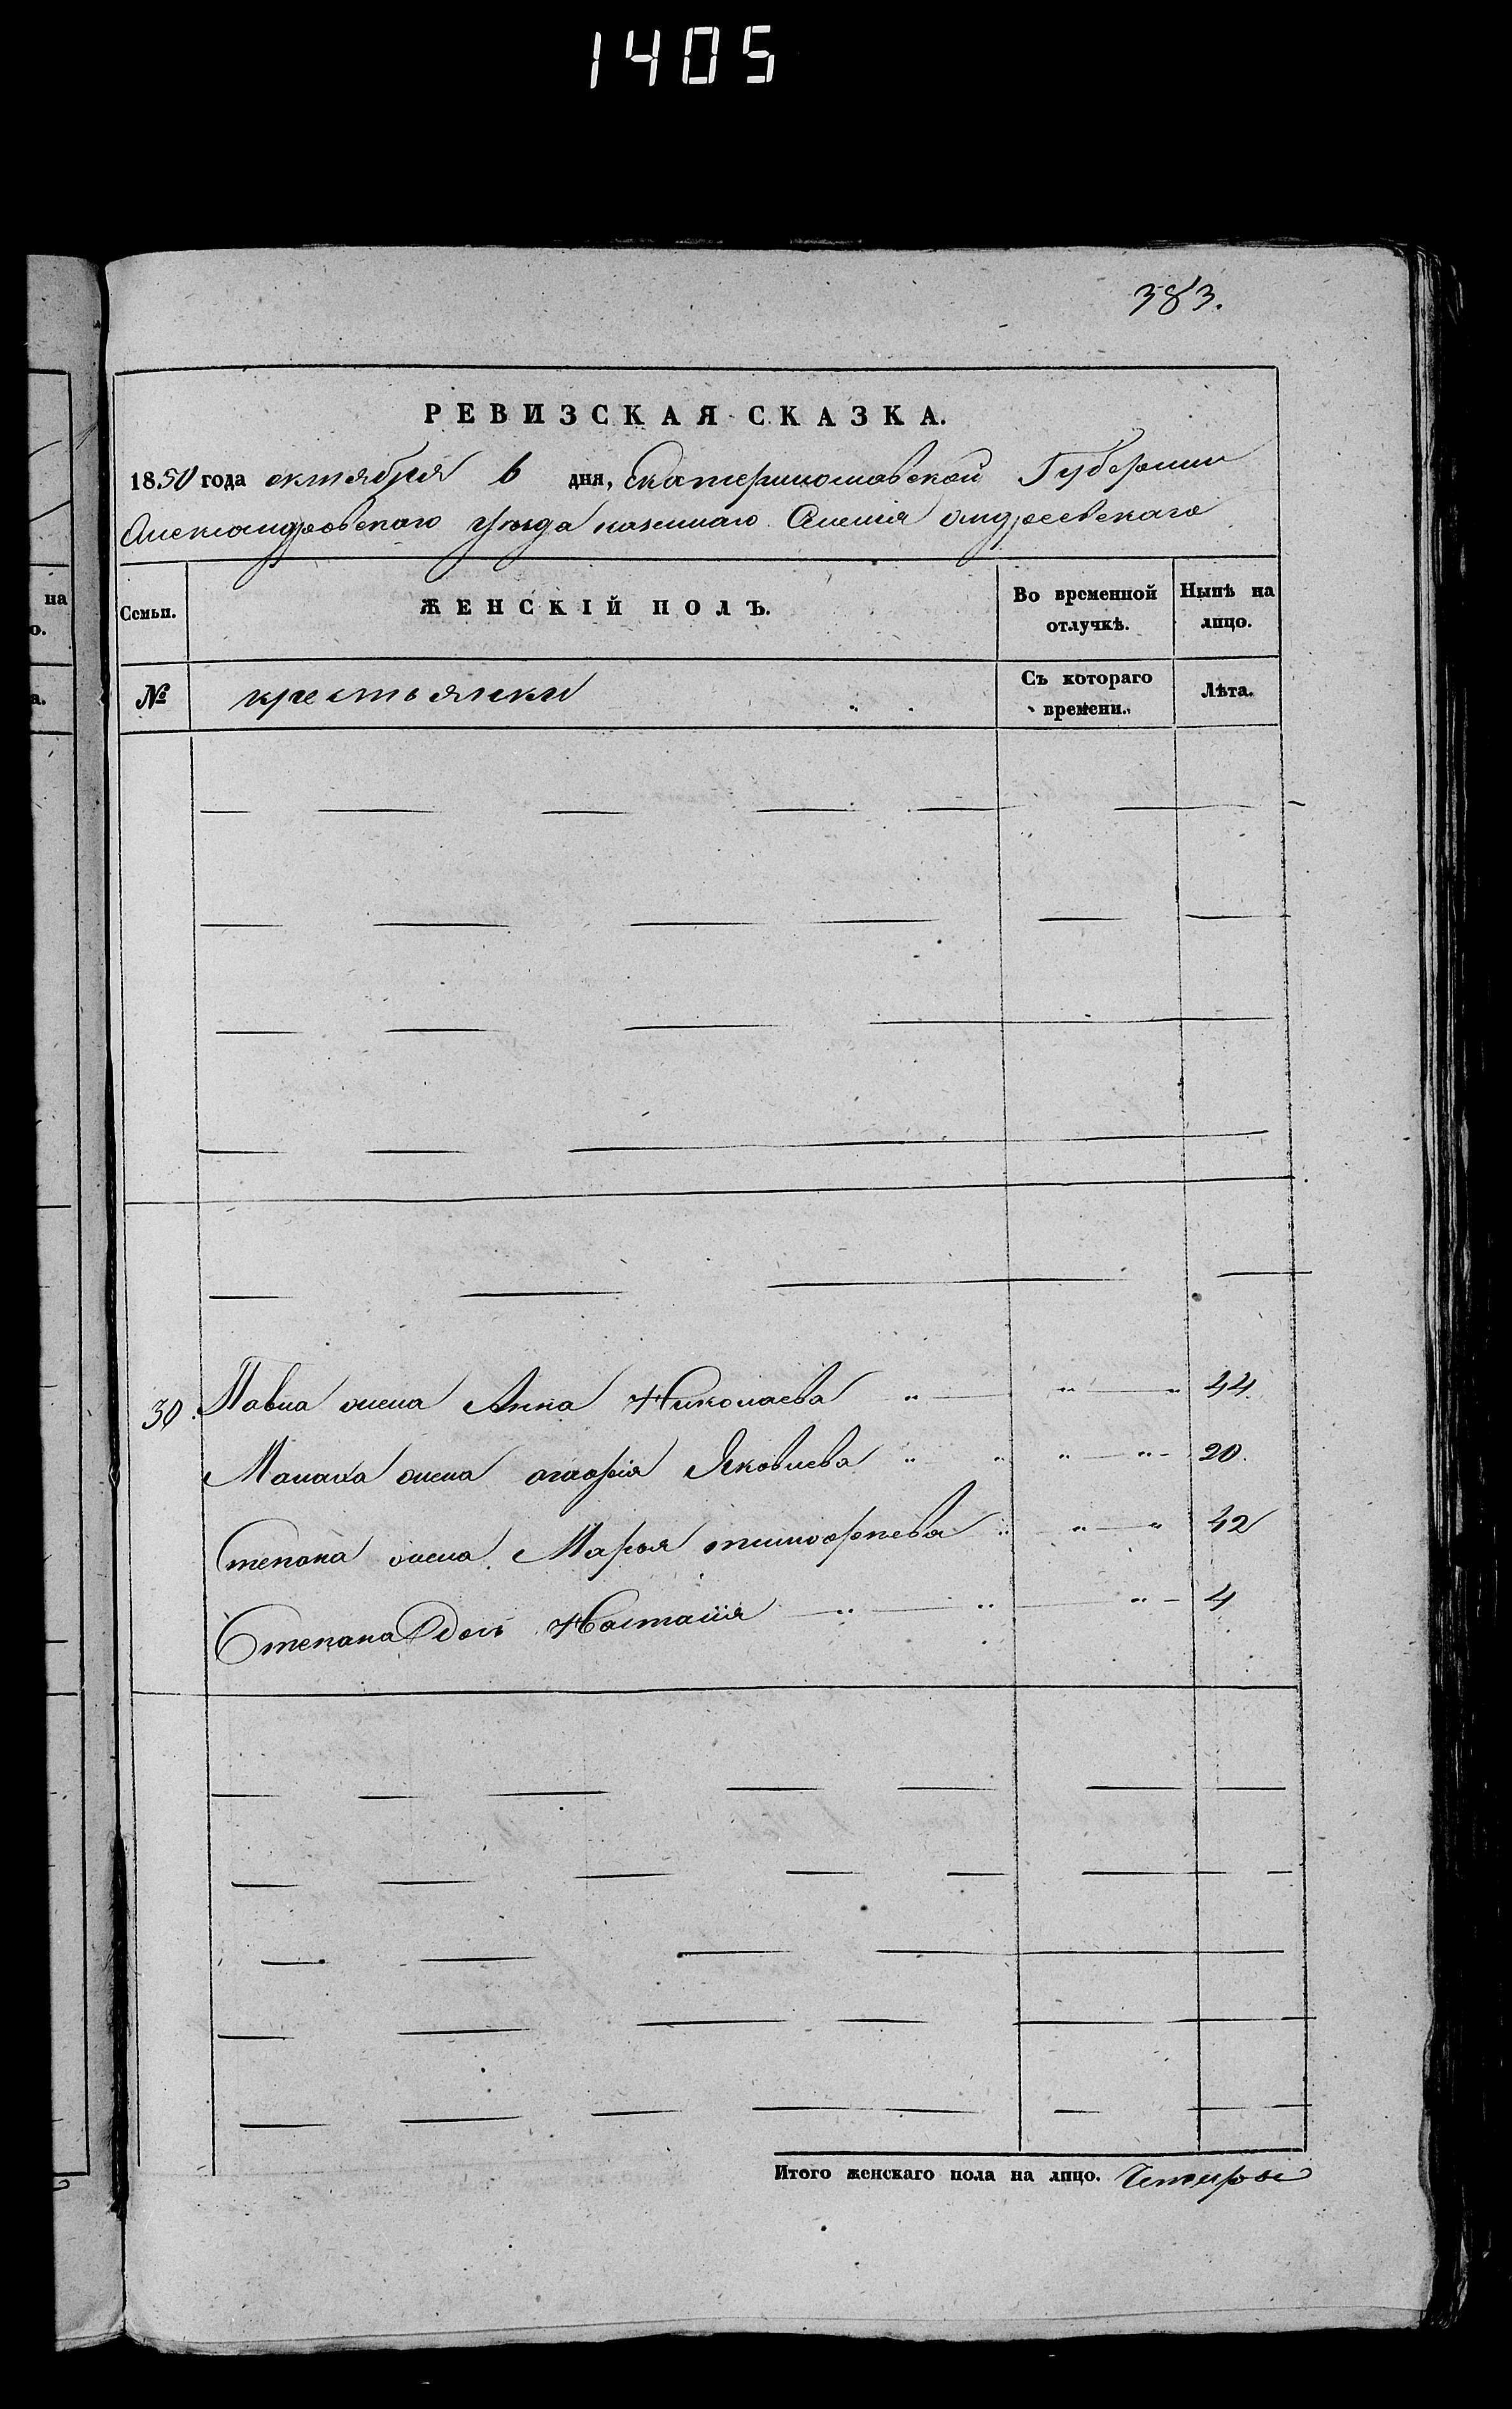 1405
383.
РЕВИЗСКАЯ СКАЗКА.
1850 года октября 6 дня, Екатеринославской Губернии
Александровского уѣзда казеннаго Селенія Андреевскаго
на
о.
а.
Семьи. ЖЕНСКІЙ ПОЛЪ. Во временной отлучкѣ. Нынѣ на лицо.
№ крестьянки Съ котораго времени. Лѣта.
30. Павла жена Анна Николаева " — " — " 44.
жена агафія Яковлева " " " — " - 20.
Степана жена Марья тимофѣева " " — " 42
Степана дочь Настасія — " — " — " - 4
Итого женскаго пола на лицо. Четыре